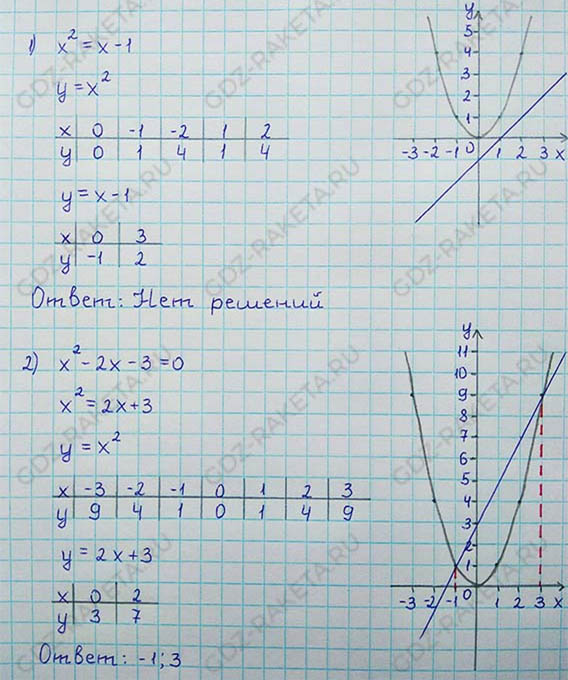 1) x² = x - 1
y = x²
x | 0 | -1 | -2 | 1 | 2
y | 0 | 1 | 4 | 1 | 4
y = x - 1
x | 0 | 3
y | -1 | 2
Ответ: Нет решений
y
5
4
3
2
1
-3 -2 -1 0 1 2 3 x
2) x² - 2x - 3 = 0
x² = 2x + 3
y = x²
x | -3 | -2 | -1 | 0 | 1 | 2 | 3
y | 9 | 4 | 1 | 0 | 1 | 4 | 9
y = 2x + 3
x | 0 | 2
y | 3 | 7
Ответ: -1; 3
y
11
10
9
8
7
6
5
4
3
2
1
-3 -2 -1 0 1 2 3 x
GDZ-RAKETA.RU